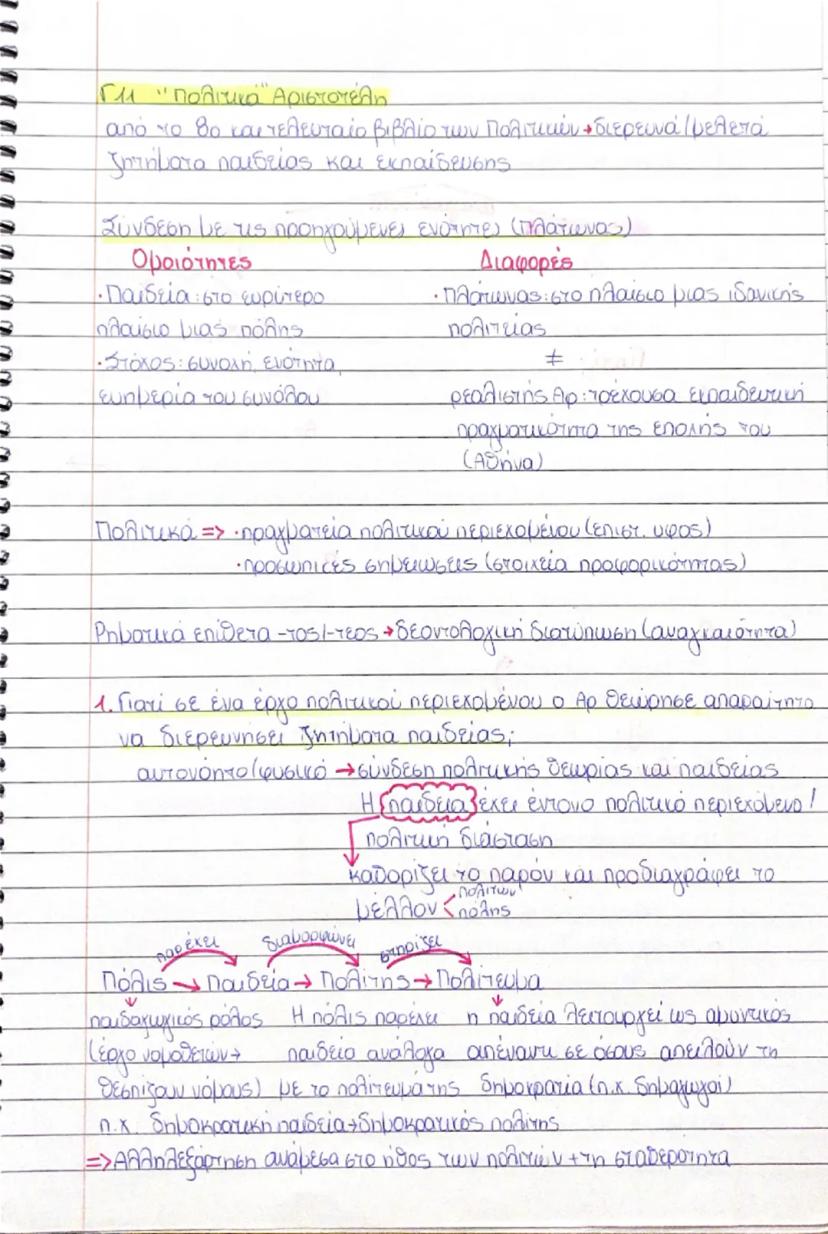 Γ11 "Πολιτικά" Αριστοτέλη
από το 8ο και τελευταίο βιβλίο των Πολιτικών → διερευνά/μελετά
ζητήματα παιδείας και εκπαίδευσης
Σύνδεση με τις προηγούμενες ενότητες (Πλάτωνας)
Ομοιότητες Διαφορές
· Παιδεία: στο ευρύτερο · Πλάτωνας: στο πλαίσιο μιας ιδανικής
πλαίσιο μιας πόλης πολιτείας
· Στόχος: συνοχή, ενότητα, ≠
ευημερία του συνόλου ρεαλιστής Αρ: τρέχουσα εκπαιδευτική
πραγματικότητα της εποχής του
(Αθήνα)
Πολιτικά => · πραγματεία πολιτικού περιεχομένου (επιστ. υφος)
· προσωπικές σημειώσεις (στοιχεία προφορικότητας)
Ρηματικά επίθετα -τος/-τεος → δεοντολογική διατύπωση (αναγκαιότητα)
1. Γιατί σε ένα έργο πολιτικού περιεχομένου ο Αρ θεώρησε απαραίτητο
να διερευνήσει ζητήματα παιδείας;
αυτονόητο/φυσικό → σύνδεση πολιτικής θεωρίας και παιδείας
Η παιδεία έχει έντονο πολιτικό περιεχόμενο!
πολιτική διάσταση
καθορίζει το παρόν και προδιαγράφει το
μέλλον < πολιτών
πόλης
παρέχει διαμορφώνει στηρίζει
Πόλις → Παιδεία → Πολίτης → Πολίτευμα
παιδαγωγικός ρόλος Η πόλις παρέχει η παιδεία λειτουργεί ως αμυντικός
(έργο νομοθετών → παιδεία ανάλογα απέναντι σε όσους απειλούν τη
θεσπίζουν νόμους) με το πολίτευμά της δημοκρατία (π.χ. δημαγωγοί)
π.χ. δημοκρατική παιδεία → δημοκρατικός πολίτης
=> Αλληλεξάρτηση ανάμεσα στο ήθος των πολιτών + τη σταθερότητα